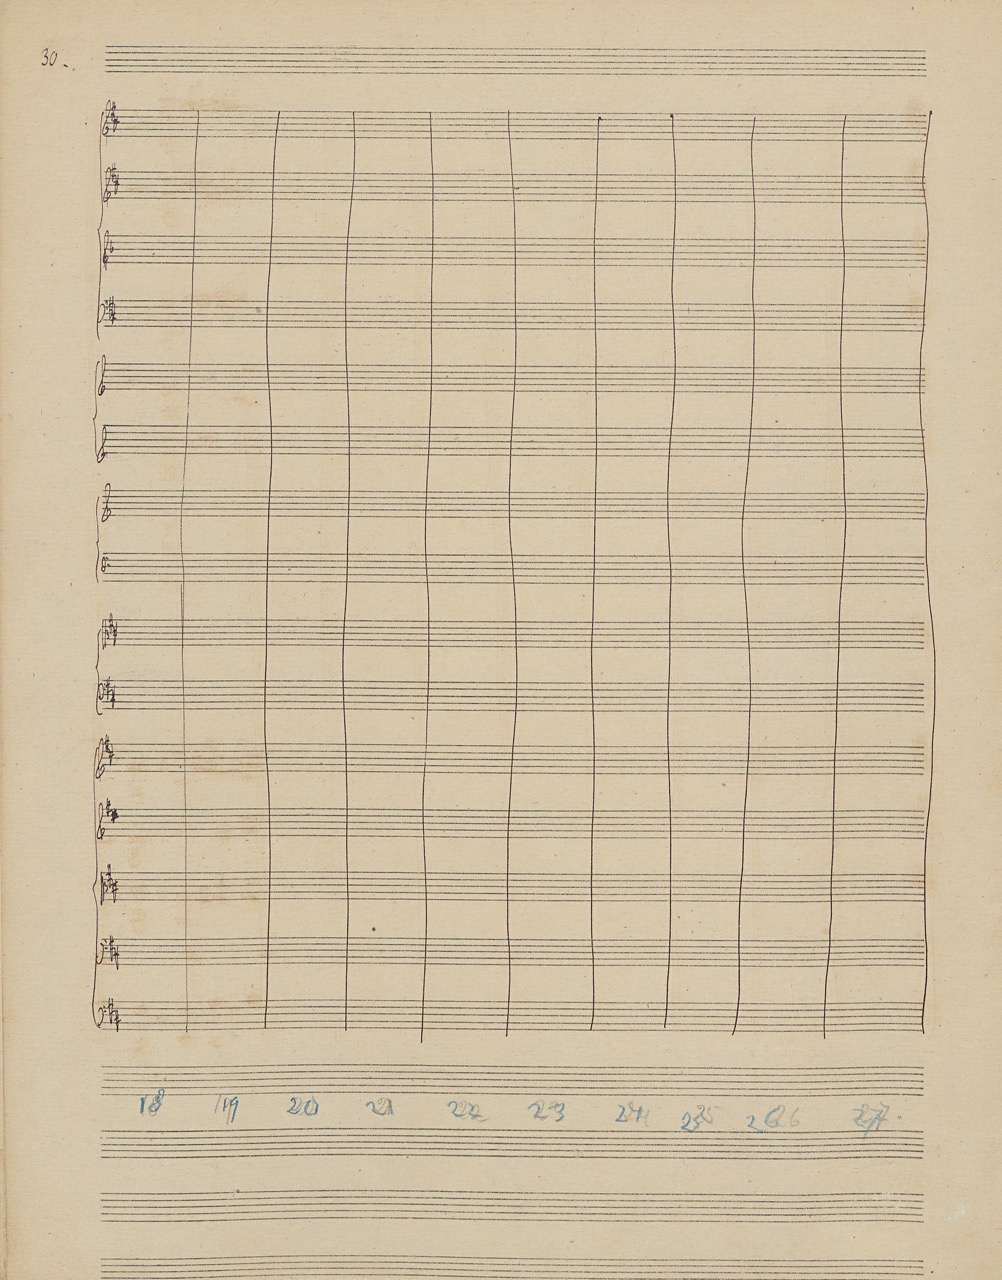 30.
18 19 20 21 22 23 24 25 26 27.